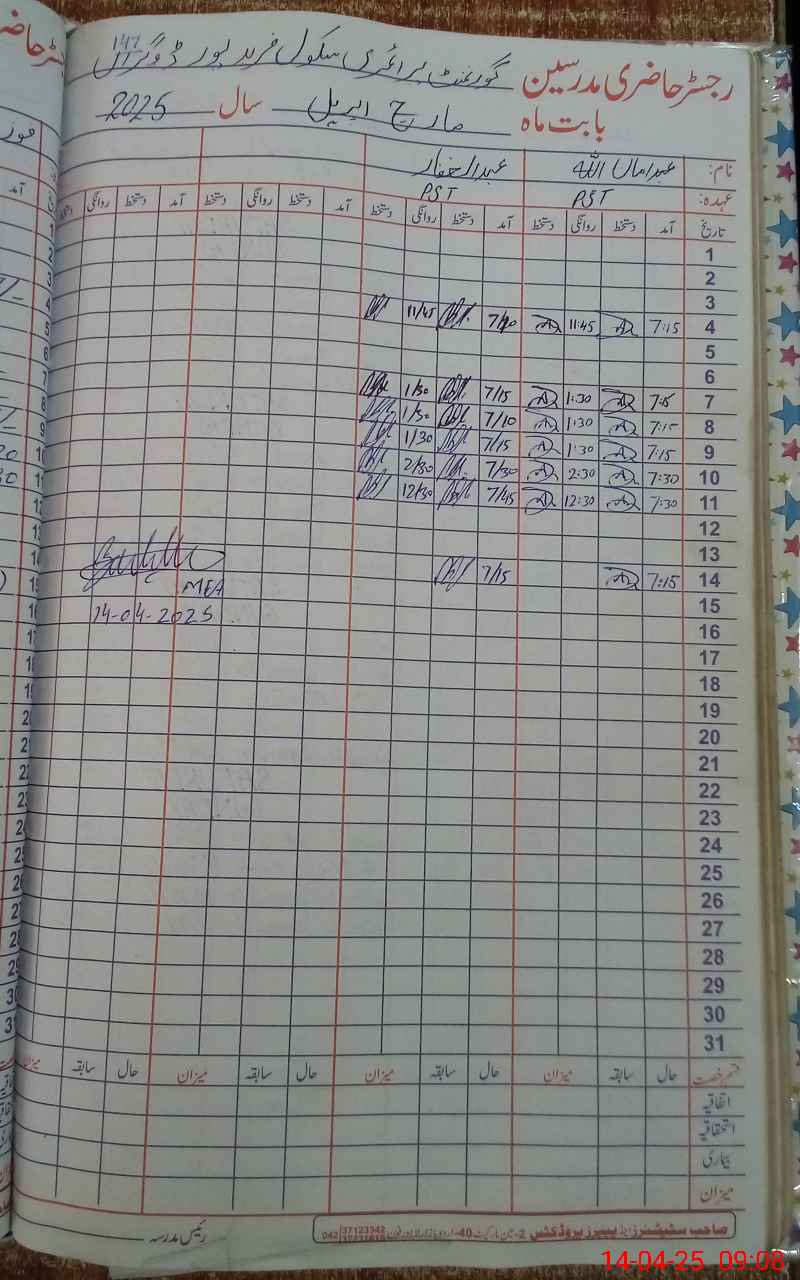 رجسٹر حاضری مدرسین گورنمنٹ پرائمری سکول فرید پور ڈوگراں
بابت ماہ مارچ اپریل سال 2025
نام: عبدامان اللہ عبدالغفار
عہدہ: PST PST
تاریخ آمد دستخط روانگی دستخط آمد دستخط روانگی دستخط آمد دستخط روانگی دستخط آمد دستخط روانگی دستخط
1
2
3
4 7:15 11:45 11/45
5
6
7 1:30 7/15 1/30
8 7:15 1:30 7/10 1/30
9 7:15 1:30 7/15 1/30
10 7:30 2:30 7/30 2/30
11 7:30 12:30 7/45 12/30
12
13
14 7:15 7/15
MEA
15
14-04-2025
16
17
18
19
20
21
22
23
24
25
26
27
28
29
30
31
قسم رخصت حال سابقہ میزان حال سابقہ میزان حال سابقہ میزان حال سابقہ میزان
اتفاقیہ
استحقاقیہ
بیماری
میزان
رئیس مدرسہ
14-04-25 09:08